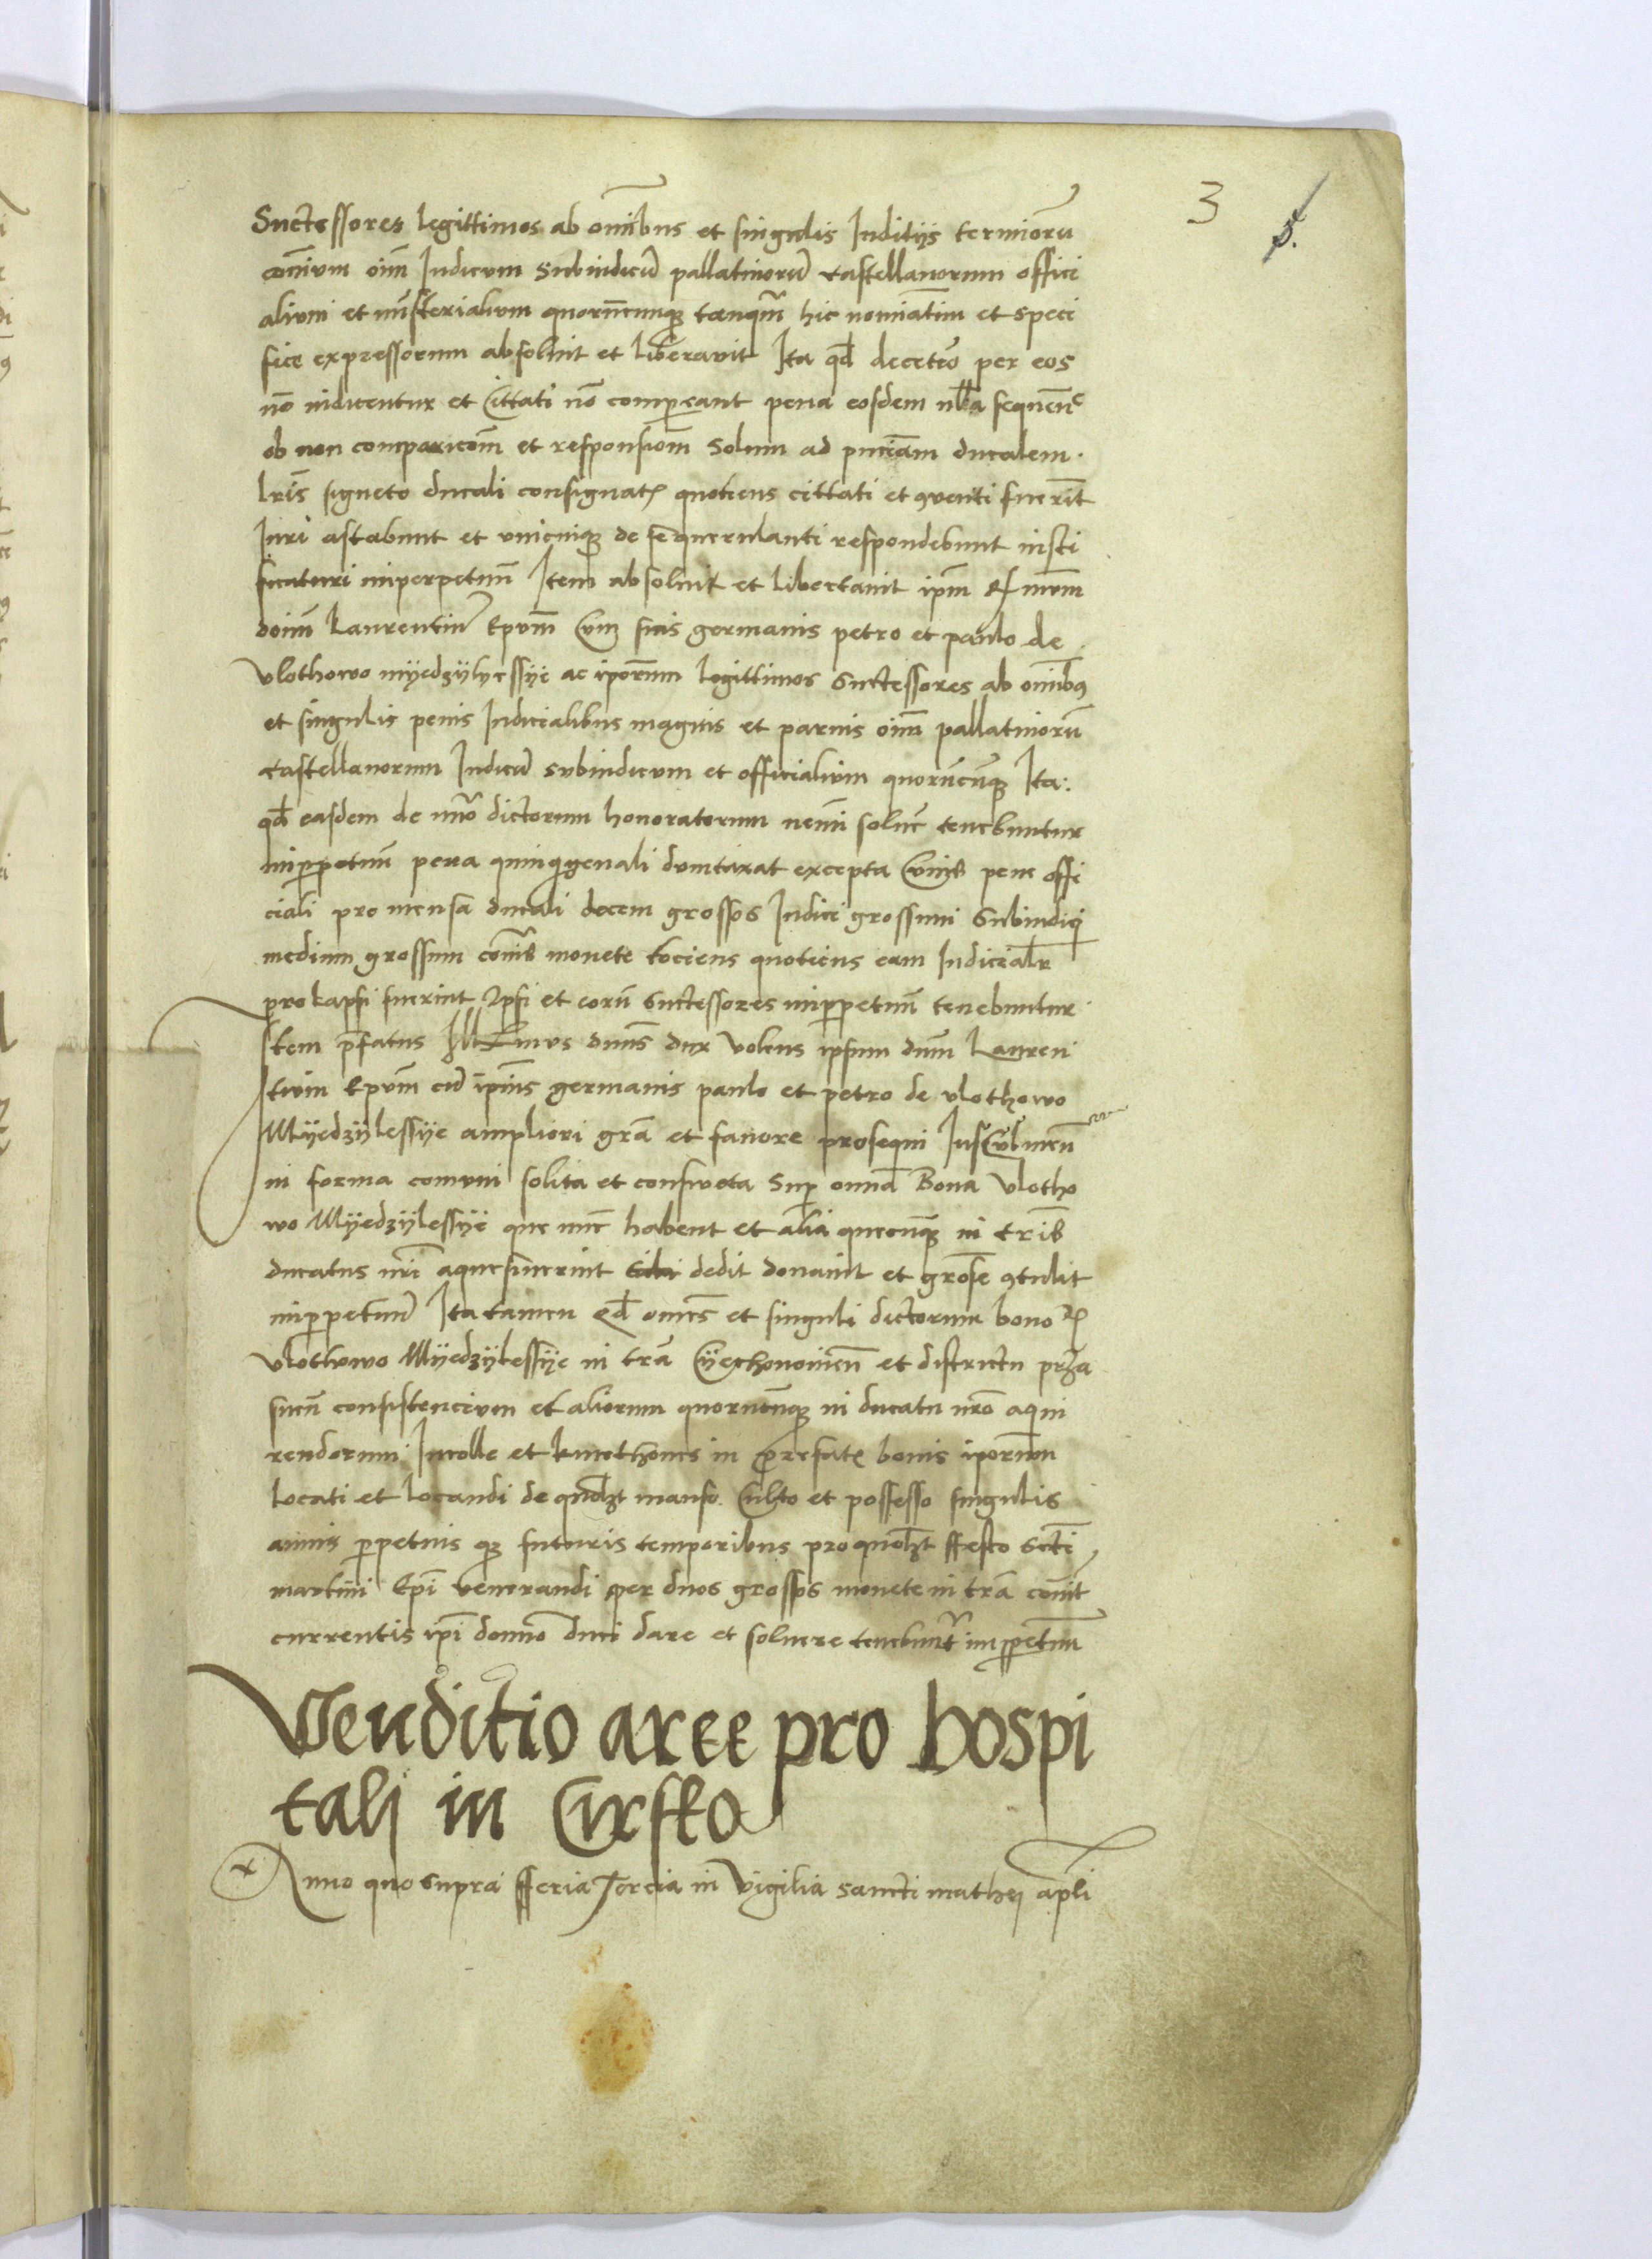 3
5.
Suctessores legittimos ab omnibus et singulis Iuditijs terminorū
omnium oim Iudicum Subiudicū pallatinorū castellanorum offici
alium et mīsterialium quorūcumqꝫ tanqm̄ hic nomīatim et speci
fice expressorum absoluit et liberavit Ita qd̄ deceteō per eos
nō iudicentur et Cittati nō compareant pena eosdem nlla sequenc̄
ob non comparicōm et responsiōm Solum ad pn̄ciam ducalem.
lrīs signeto ducali consignat quotiens cittati et ꝯventi fuerīt
Iuri astabunt et unicuiqꝫ de se querulanti respondebunt iusti
ficaturi inperpetuū Item absoluit et libertauit ipm̄
doim̄ Laurentiū Epūm Cum suis germanis petro et paulo de
Vlothowo myedzylyessye ac ipōrum legittimos Suctessores ab omnībꝯ
et singulis penis Iudicialibus magnis et parvis oim̄ pallatinorū
castellanorum Iudicū subiudicum et officialium quorūcūqꝫ Ita:
qd̄ easdem de nūo dictorum honoratorum nemī solue tenebuntur
inp̄petuū pena quinqꝫgenali dumtaxat excepta Cuius pene offi
ciali pro mensa ducali decem grossos Iudici grossum Subiudici
medium grossum cōmis monete tociens quotiens eam Iudicialr̄
prolapsi fuerint Ipsi et eorū Suctessores inp̄petuū tenebuntur
Item p̄fatus Illmus dnūs dux volens ipsum dnm̄ Lauren
tium Epūm cū ipīus germanis paulo et petro de vlothowo
Myedzylessye ampliori grā et favore prosequi Ius Culmen̄
in forma comuni solita et consweta Sup omnīa Bona Vlotho
wo Myedzylessye que nūc habent et alīa quecūqꝫ in trīs
ducatus nrī aquesiuerint dedit donauit et grōse ꝯtulit
inp̄petuū Ita tamen qd̄ omēs et singuli dictorum bonoꝝ
vlothowo Myedzylessye in trā Cyechonowien̄ et districtu prza
sinen̄ consistencium et aliorum quorūcūqꝫ in ducatu nrō aqui
rendorum Incolle et kmethones in prefat bonis ipōrum
locati et locandi de quolꝫt manso Culto et possesso singulis
annis p̄petuis qꝫ futuris temporibus pro quolꝫt ffesto Sctī
martini Epī venerandi per duos grossos monete in trā comīt
currentis ipī domīo duci dare et soluere tenebuntr inp̄petuū
Venditio aree pro hospi
talj in Cirsko
Anno quo supra fferia Tercia in Vigilia sancti mathej apli